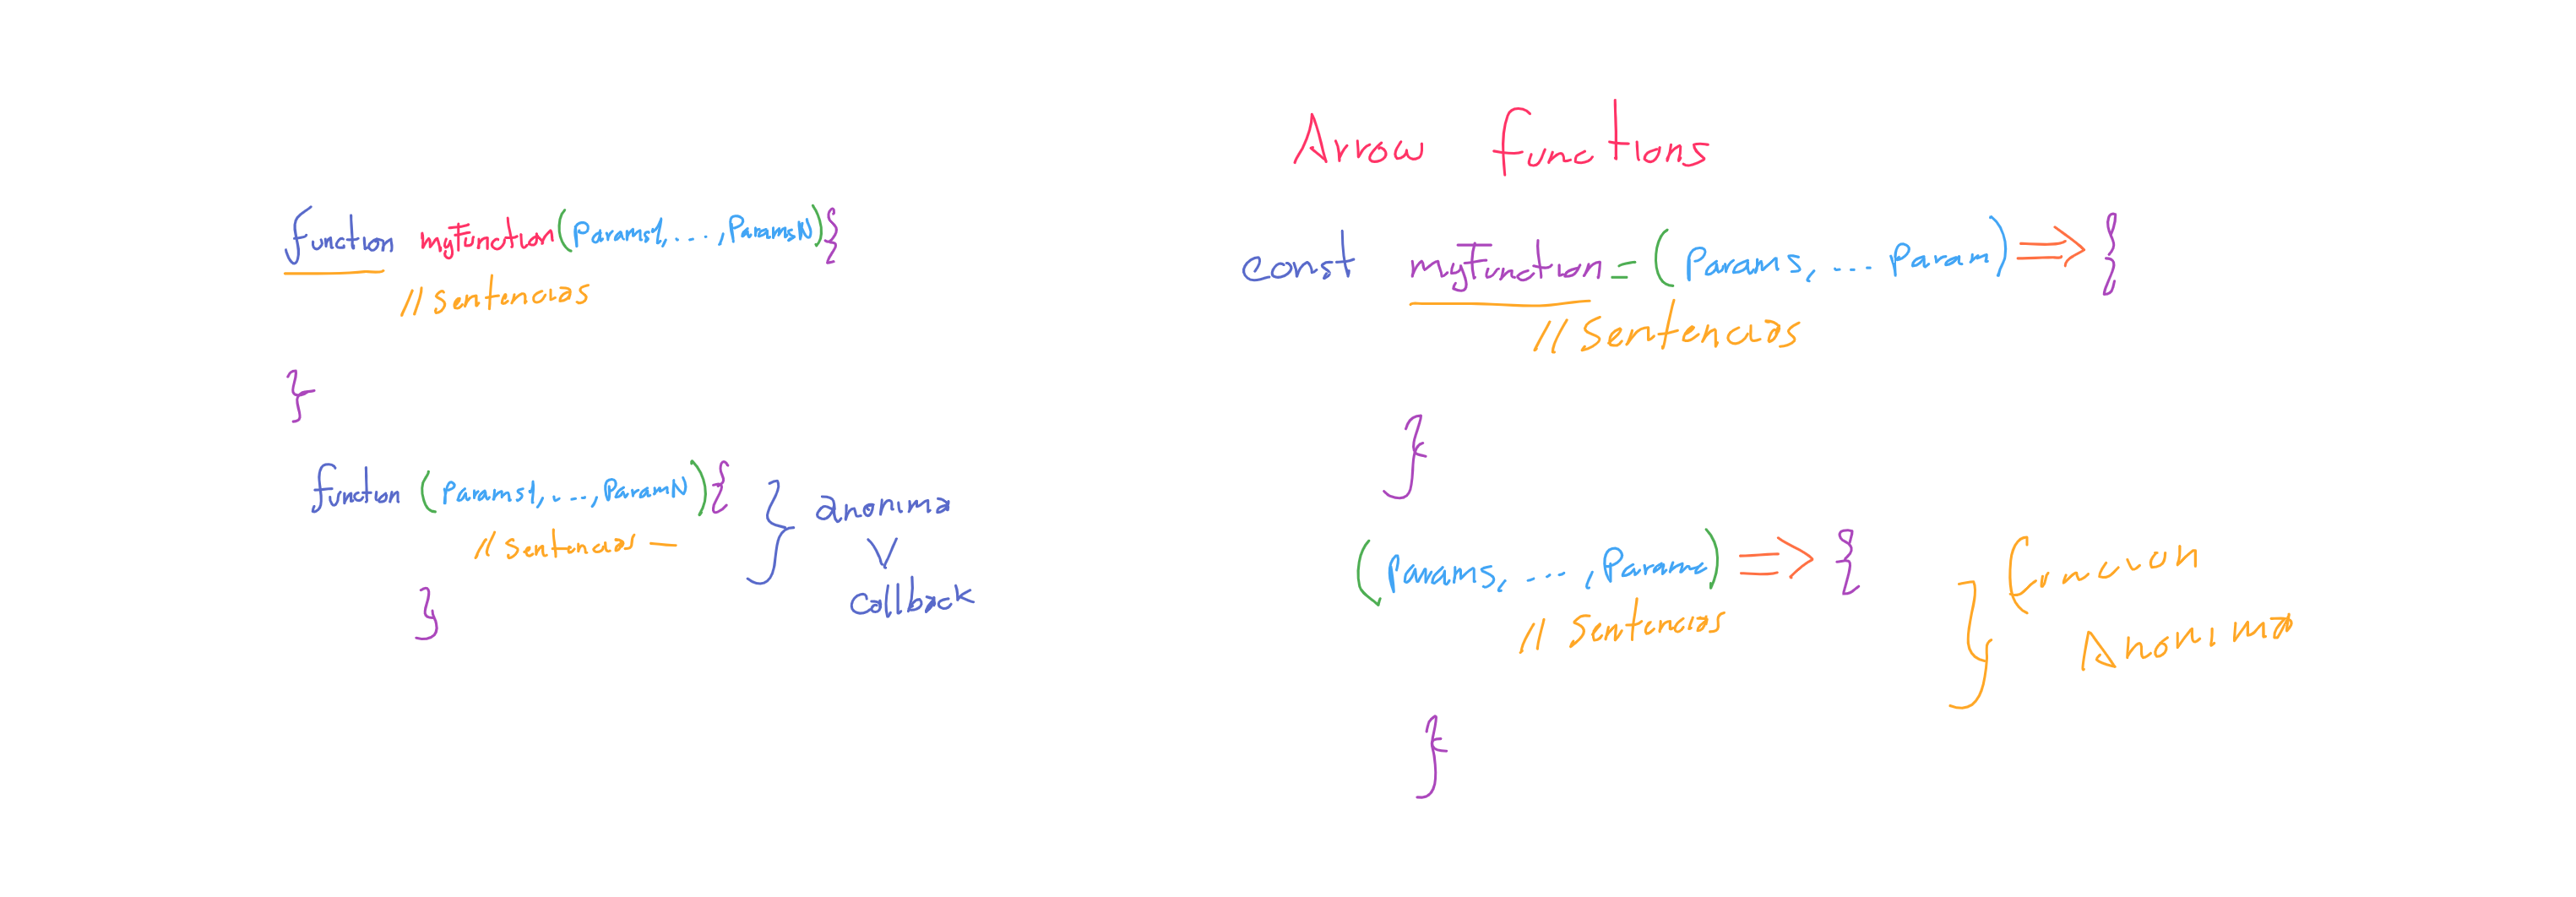 function myFunction(Params1, ... ,ParamsN){
// Sentencias
}
function (Params1, ... ,ParamN){
// Sentencias —
}
} anonima
V
callback
Arrow functions
const myFunction = (Params, ... Param) => {
// Sentencias
}
(Params, ... , Params) => {
// Sentencias
}
} funcion
Anonima